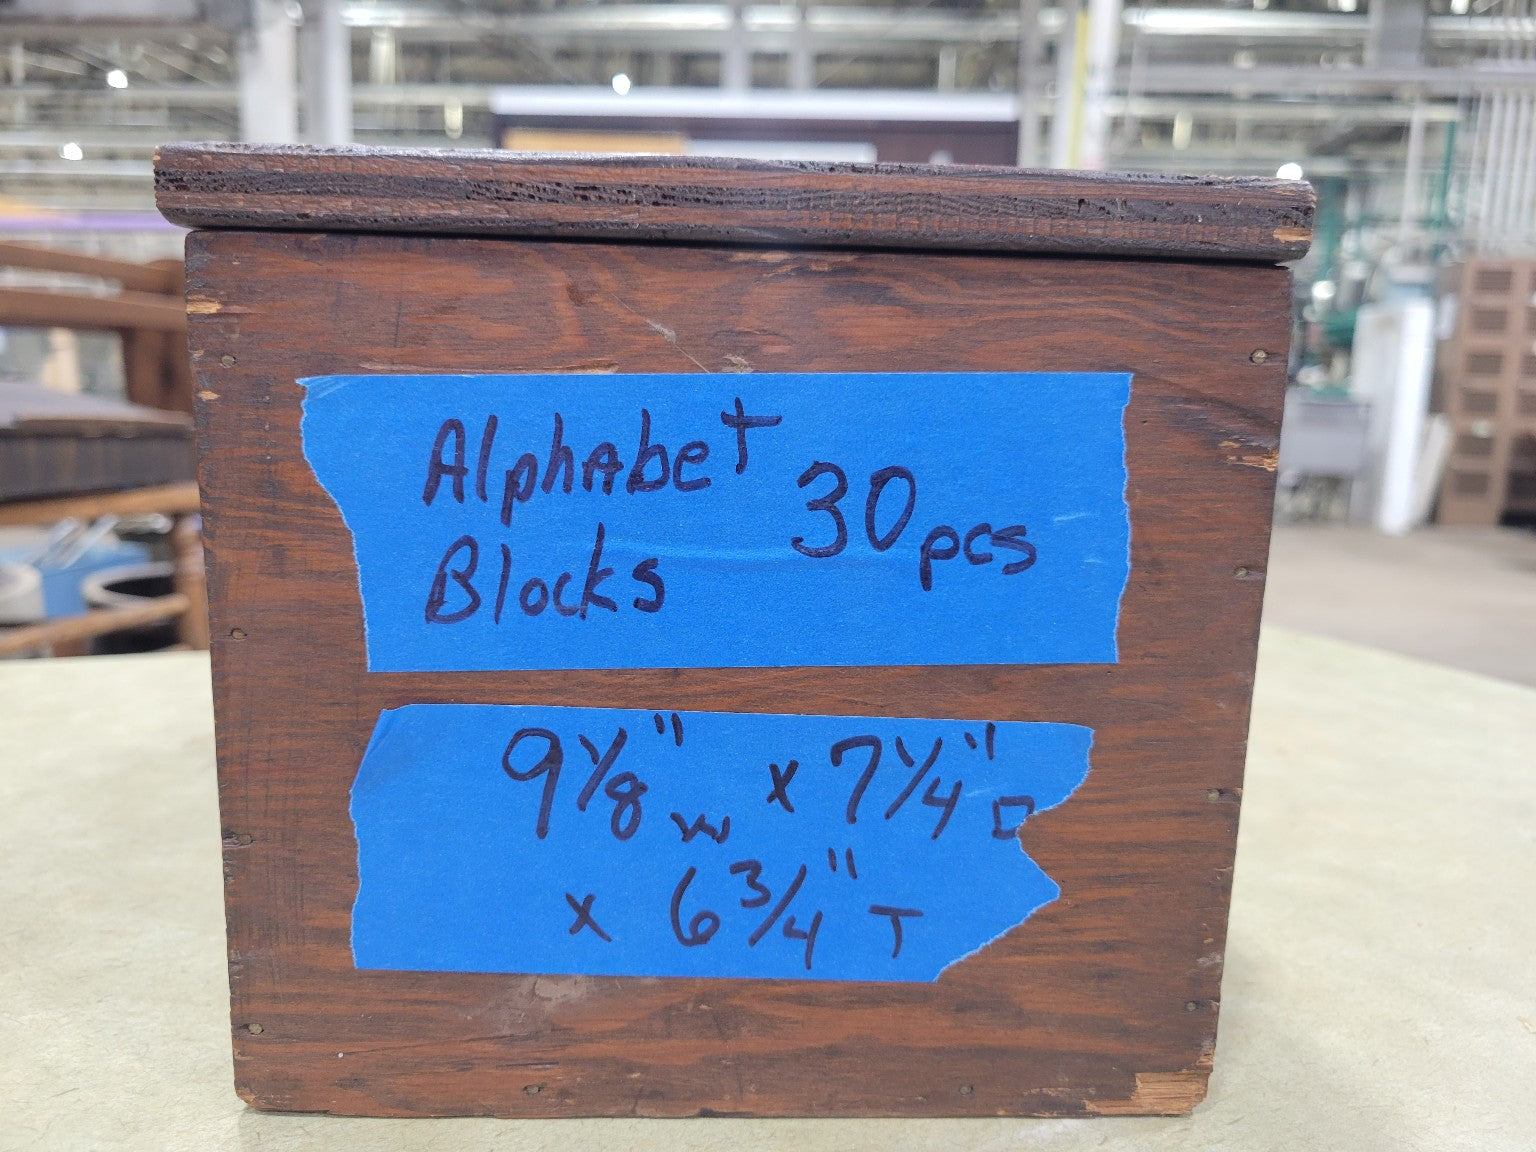 Alphabet 30 pcs
Blocks
9 1/8" W x 7 1/4" D
x 6 3/4" T